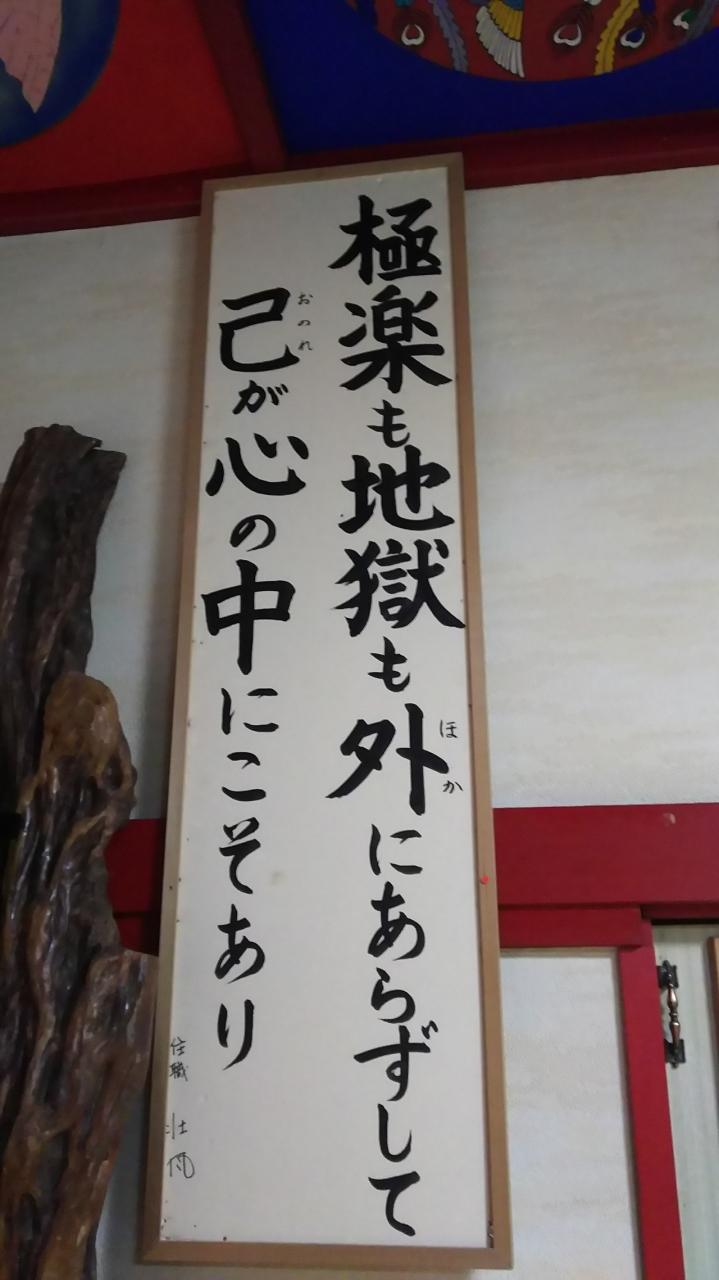 極楽も地獄も外にあらずして
ほか
己が心の中にこそあり
おのれ
住職